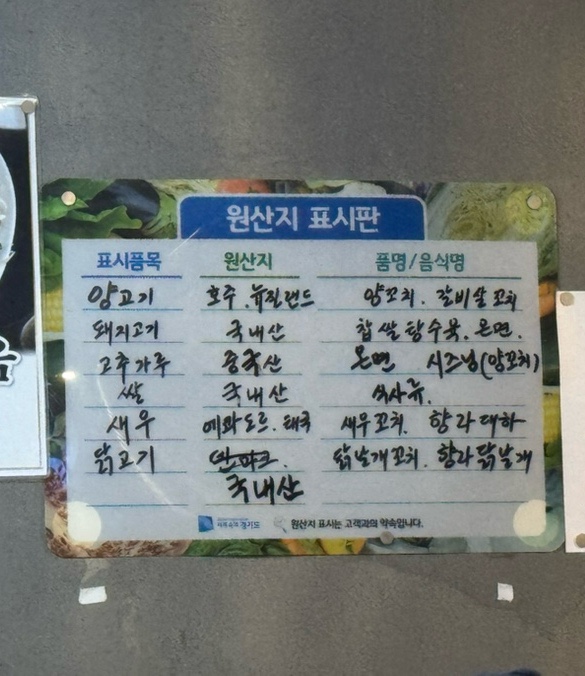 원산지 표시판
표시품목 원산지 품명/음식명
양고기 호주.뉴질랜드 양꼬치. 갈비살꼬치
돼지고기 국내산 찹쌀탕수육. 온면.
고추가루 중국산 온면 시즈닝(양꼬치)
쌀 국내산 식사류.
새우 에콰도르. 태국 새우꼬치. 향라대하
닭고기 덴마크. 닭날개꼬치. 향라닭날개
국내산
경기도 원산지 표시는 고객과의 약속입니다.
음